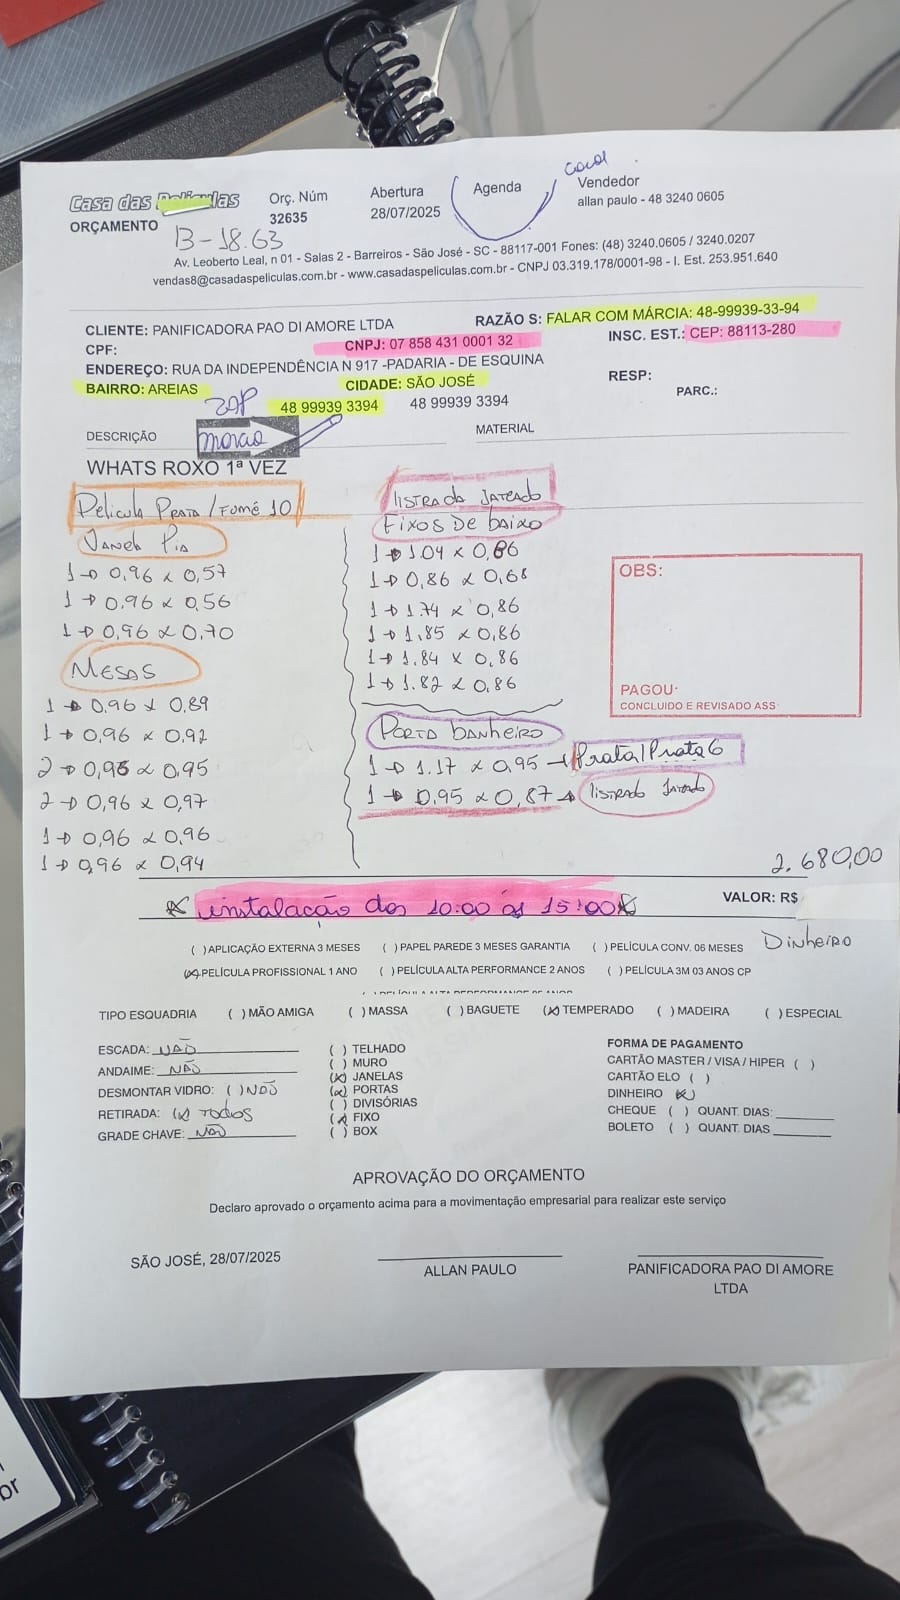 Casa das Películas
ORÇAMENTO
Orç. Núm
32635
Abertura
28/07/2025
Agenda
Vendedor
allan paulo - 48 3240 0605
13-18.63
Av. Leoberto Leal, n 01 - Salas 2 - Barreiros - São José - SC - 88117-001 Fones: (48) 3240.0605 / 3240.0207
vendas8@casadaspeliculas.com.br - www.casadaspeliculas.com.br - CNPJ 03.319.178/0001-98 - I. Est. 253.951.640
CLIENTE: PANIFICADORA PAO DI AMORE LTDA
RAZÃO S: FALAR COM MÁRCIA: 48-99939-33-94
CPF:
CNPJ: 07 858 431 0001 32
INSC. EST.: CEP: 88113-280
ENDEREÇO: RUA DA INDEPENDÊNCIA N 917 -PADARIA - DE ESQUINA
BAIRRO: AREIAS
CIDADE: SÃO JOSÉ
RESP:
PARC.:
ZAP
48 99939 3394
48 99939 3394
DESCRIÇÃO
MATERIAL
WHATS ROXO 1ª VEZ
Película Prata/Fumê 10
Janela Pia
1→ 0,96 x 0,57
1→ 0,96 x 0,56
1→ 0,96 x 0,70
Mesas
1→ 0,96 x 0,89
1→ 0,96 x 0,92
2→ 0,96 x 0,95
2→ 0,96 x 0,97
1→ 0,96 x 0,96
1→ 0,96 x 0,94
Listrado Jateado
Fixos de baixo
1→ 1.04 x 0,86
1→ 0,86 x 0,68
1→ 1.74 x 0,86
1→ 1.85 x 0,86
1→ 1.84 x 0,86
1→ 1.82 x 0,86
Porta banheiro
1→ 1.17 x 0,95 → Prata/Prata 6
1→ 0,95 x 0,87 → listrado Jateado
OBS:
PAGOU:
CONCLUIDO E REVISADO ASS
2.680,00
VALOR: R$
instalação das 10:00 às 15:00
Dinheiro
( )APLICAÇÃO EXTERNA 3 MESES ( ) PAPEL PAREDE 3 MESES GARANTIA ( ) PELÍCULA CONV. 06 MESES
(x)PELÍCULA PROFISSIONAL 1 ANO ( ) PELÍCULA ALTA PERFORMANCE 2 ANOS ( ) PELÍCULA 3M 03 ANOS CP
TIPO ESQUADRIA ( ) MÃO AMIGA ( ) MASSA ( ) BAGUETE (x) TEMPERADO ( ) MADEIRA ( ) ESPECIAL
ESCADA: NÃO
ANDAIME: NÃO
DESMONTAR VIDRO: ( ) NÃO
RETIRADA: (x) Todos
GRADE CHAVE: NÃO
( ) TELHADO
( ) MURO
(x) JANELAS
(x) PORTAS
( ) DIVISÓRIAS
(x) FIXO
( ) BOX
FORMA DE PAGAMENTO
CARTÃO MASTER / VISA / HIPER ( )
CARTÃO ELO ( )
DINHEIRO (x)
CHEQUE ( ) QUANT. DIAS:
BOLETO ( ) QUANT. DIAS
APROVAÇÃO DO ORÇAMENTO
Declaro aprovado o orçamento acima para a movimentação empresarial para realizar este serviço
SÃO JOSÉ, 28/07/2025
ALLAN PAULO
PANIFICADORA PAO DI AMORE
LTDA